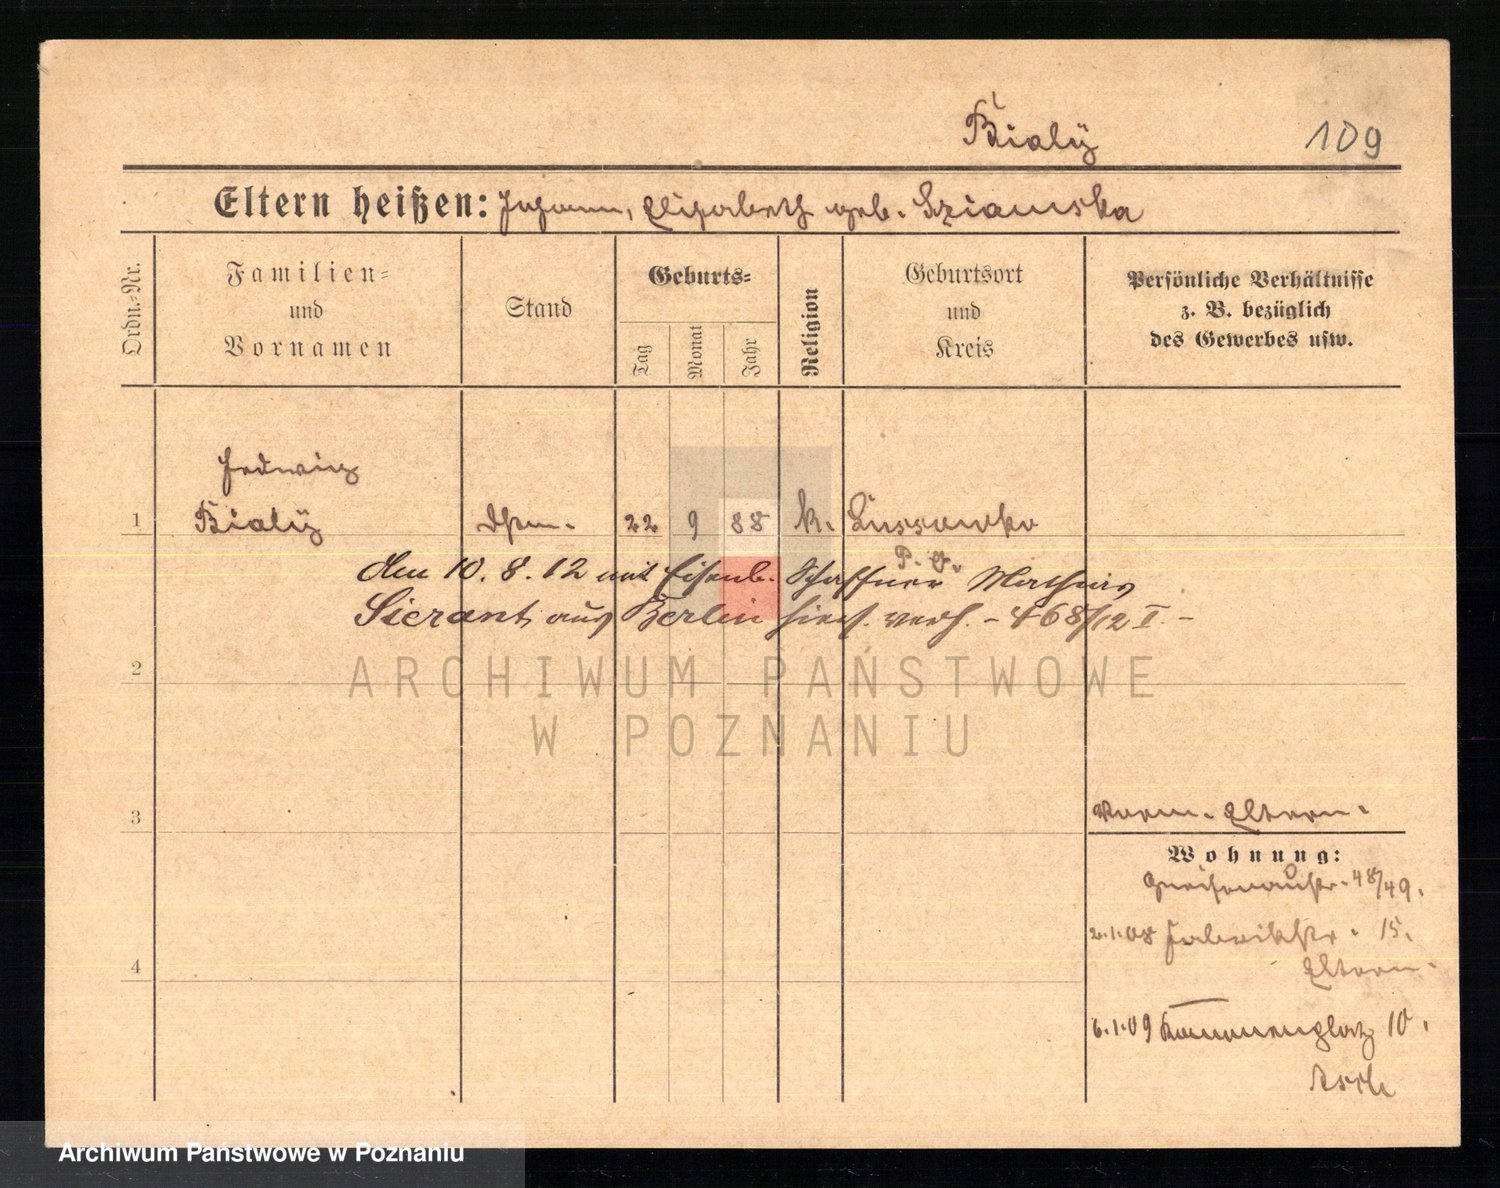 Bialÿ 109
Eltern heißen: Johann, Elisabeth geb. Sziamska
Ordn.-Nr.
Familien-
und
Vornamen
Stand
Geburts-
Tag
Monat
Jahr
Religion
Geburtsort
und
Kreis
Persönliche Verhältnisse
z. B. bezüglich
des Gewerbes usw.
Hedwig
1 Bialÿ 22 9 88 k. Lussowko
P. O.
den 10.8.12 mit Eisenb. Schaffner Mathias
Sierant aus Berlin hies. verh. - 468/12 I. -
2
3
4
Eltern.
Wohnung:
Gneisenaustr. 48/49.
2.1.08 Fabrikstr. 15.
Eltern.
6.1.09 10.
ARCHIWUM PAŃSTWOWE
W POZNANIU
Archiwum Państwowe w Poznaniu